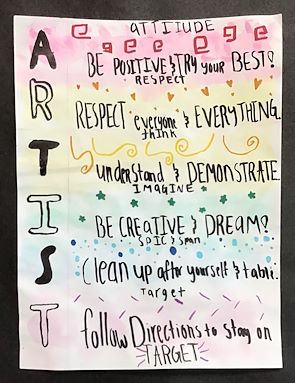 ATTITUDE
A
BE POSITIVE & TRY your BEST!
RESPECT
R
RESPECT everyone & EVERYTHING.
think
T
understand & DEMONSTRATE
IMAGINE
I
BE CREATIVE & DREAM!
SPIC & Span
S
Clean up after yourself & table.
Target
T
follow Directions to stay on
TARGET